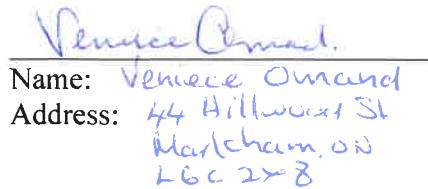 Veniece Omand.
Name: Veniece Omand
Address: 44 Hillwood St
Markham, ON
L6C 2X8